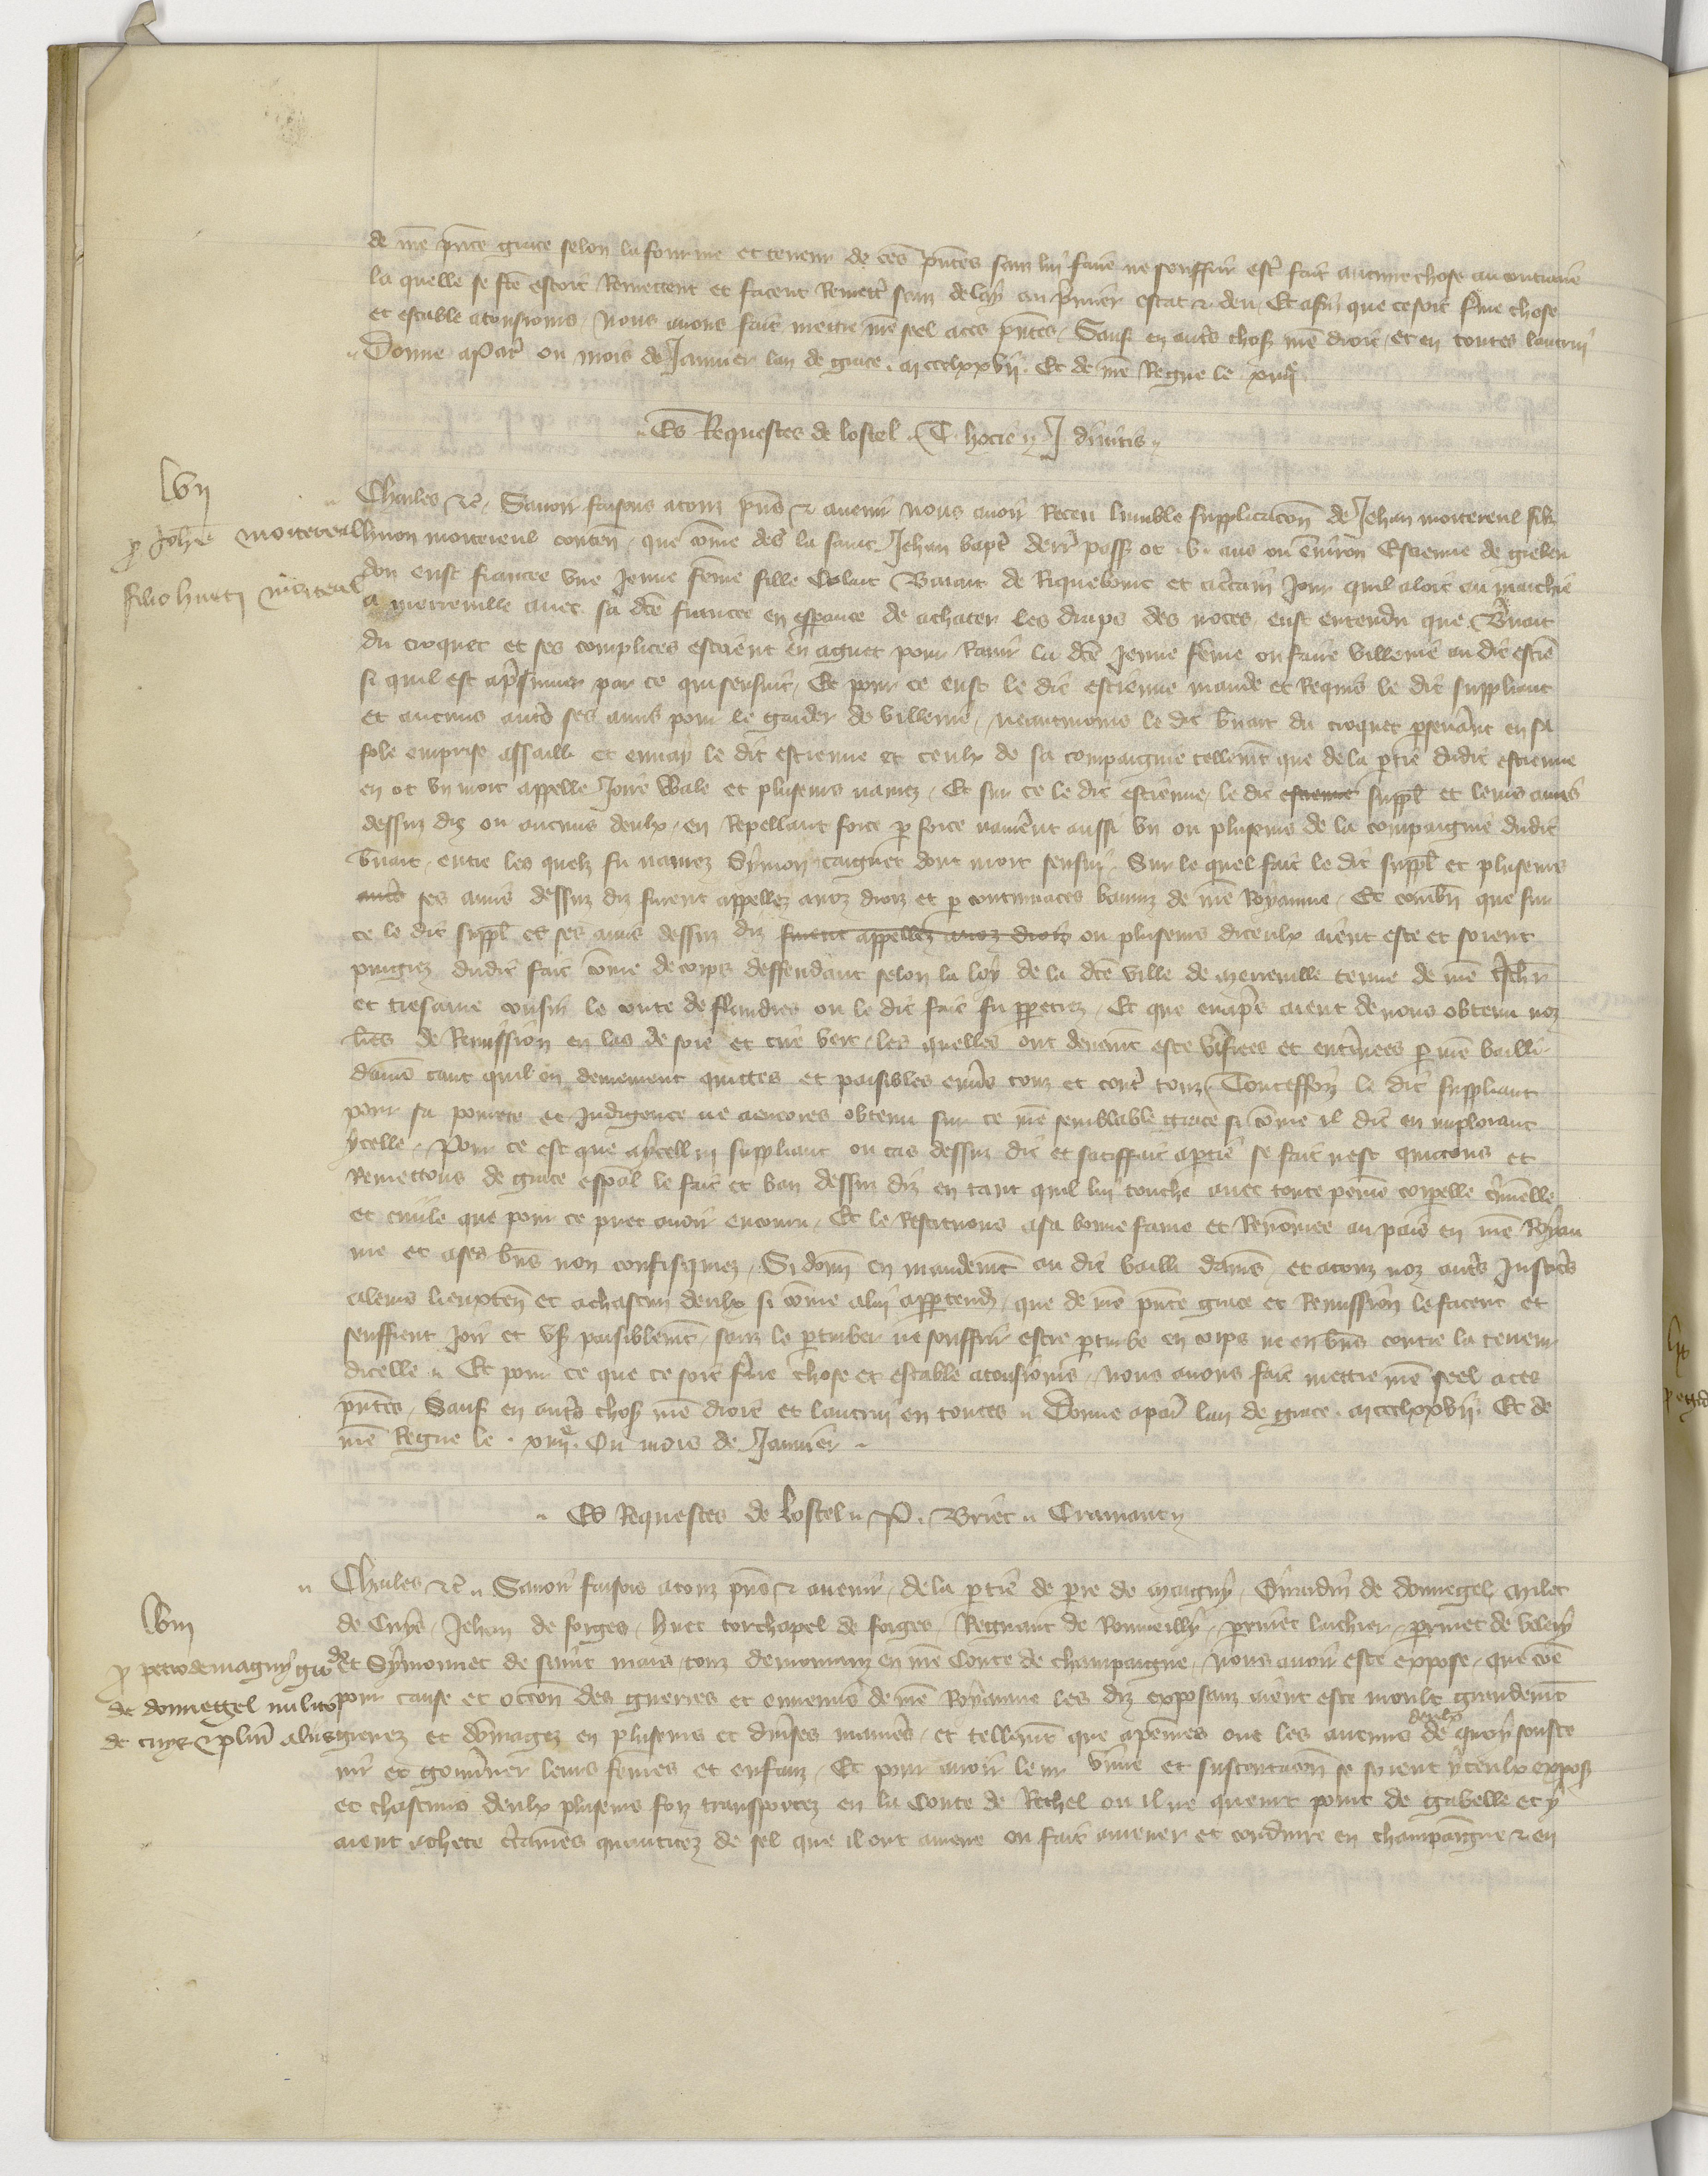 de nre pnte grace selon la fourme et teneur de ces pntes sanz lui faire ne souffrir estre fait aucune chose au contraire
la quelle se fte estoit Remettent et facent Remettre sanz delay au premier estat & deu Et afin que ce soit ferme chose
et estable atousiours Nous avons fait mettre nre seel a ces pntes Sauf en autres choses nre droit et en toutes lautrui
Donne a Paris ou mois de Janvier lan de grace . m ccclxxvii . Et de nre Regne le xiiiie
Es Requestes de lostel T. hocie J divitis
lvii
p Johe moitereul
filio hueti moitereul
Charles &c. Savoir faisons a touz pns & avenir Nous avoir Receu lumble supplicacon de Jehan moitereul filz
huon moitereul conten que come des la saint Jehan bapt derr pass ot . v . ans ou environ Estienne de giebeu
don eust fiancee une Jeune feme fille Colart Bavart de Riquebourc et certain Jour quil aloit ou marchie
a merreville avec sa dce fiancee en esperance de achater les draps des noces eust entendu que Bnart
du croquet et ses complices estoient en aguet pour Ravir la dce Jeune feme ou faire villenie au dit estie
si quil est apresumer par ce qui sensuit Et pour ce eust le dit estienne mande et Requis le dit suppliant
et aucuns autres ses amis pour le garder de villenie, neantmoins le dit bnart du croquet perseverant en sa
fole emprise assailli et envay le dit estienne et ceulx de sa compaignie tellemt que de la ptie dudit estienne
en ot un mort appelle Joire Wale et pluseurs navrez . Et sur ce le dit estienne, le dit estienne suppl et leurs amis
dessuz diz ou aucuns deulx, en Repellant force p force navrerent aussi un ou pluseurs de la compaignie dudit
bnart, entre les quelz fu navrez Symon caignet dont mort sensui . Sur le quel fait le dit suppl et pluseurs
autres ses amis dessuz diz furent appellez a noz droiz et p contumaces banniz de nre Royaume, Et combn que sur
ce le dit suppl et ses amis dessuz diz furent appellez a noz droiz ou pluseurs diceulx aient este et soient
purgiez dudit fait come de corps deffendant selon la loy de la dce ville de merreville tenue de nre tchr
et tresame cousin le conte de flandres ou le dit fait fu ppetrez, Et que enapres aient de nous obtenu noz
lres de Remission en las de soie et cire vert, les quelles ont deuemt este verifiees et enterinees p nre bailli
damies tant quil en demeurent quittes et paisibles envers touz et contre touz, Toutesfoiz le dit suppliant
pour sa povrete et Indigence ne aencores obtenu sur ce nre semblable grace si come il dit en implorant
ycelle, Pour ce est que a ycellui suppliant ou cas dessuz dit et satiffait a ptie se fait nest quictons et
Remettons de grace espal le fait et ban dessuz diz en tant quil lui touche avec toute peine corpelle criminelle
et civile que pour ce puet avoir encouru, Et le Restituons a sa bonne fame et Renomee au pais en nre Royau
me et a ses bns non confisquiez, Si donn en mandemt au dit bailli damies, et a touz noz autres Justiciers
a leurs lieuxten et a chascun deulx si come a lui appartendra, que de nre pnte grace et Remission le facent et
seuffrent Joir et user paisiblemt, sanz le perturber ne souffrir estre perturbe en corps ne en bns contre la teneur
dicelle . Et pour ce que ce soit ferme chose et estable atousiours, Nous avons fait mettre nre seel a ces
pntes, Sauf en autres choses nre droit et lautrui en toutes . Donne a paris lan de grace . m ccclxxvii . Et de
nre Regne le . xiiiie . Ou mois de Janvier .
Es Requestes de lostel . P . Briet . Cramanty
lviii
p petro de magny gir
de donnegel milito
de cuys & plur aliis
Charles &c . Savoir faisons a touz pns & avenir, de la ptie de pre de Magny, Girardin de donnegel, Milet
de Cuys, Jehan de forges, huet torchapel de forges, Regnaut de Ronneilly, perrinet lachier, perrinet de veleny
et Symonnet de saint mars touz demourans en nre Conte de champaigne, Nous avoir este expose, que come
pour cause et occon des guerres et ennemis de nre Royaume les diz exposanz aient este moult grandemt
grevez et domagez en pluseurs et diverses manieres, et tellemt que a peines ont les aucuns deulx de quoy souste
nir et gouverner leurs femes et enfanz, Et pour avoir leur vivre et sustentacon se soient yceulx expos
et chascuns deulx pluseurs foiz transportez en la Conte de Rethel ou il ne queurt point de gabelle et y
aient achete certaines quantitez de sel que il ont amene ou fait amener et conduire en champaigne & en